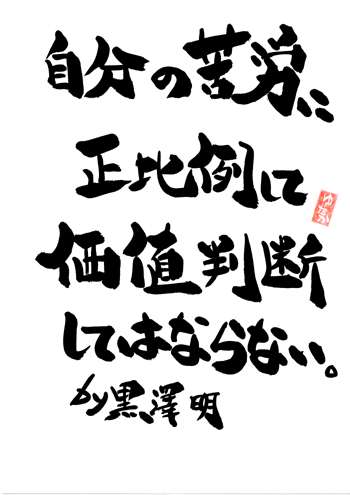 自分の苦労に
正比例して
価値判断
してはならない。
by黒澤明